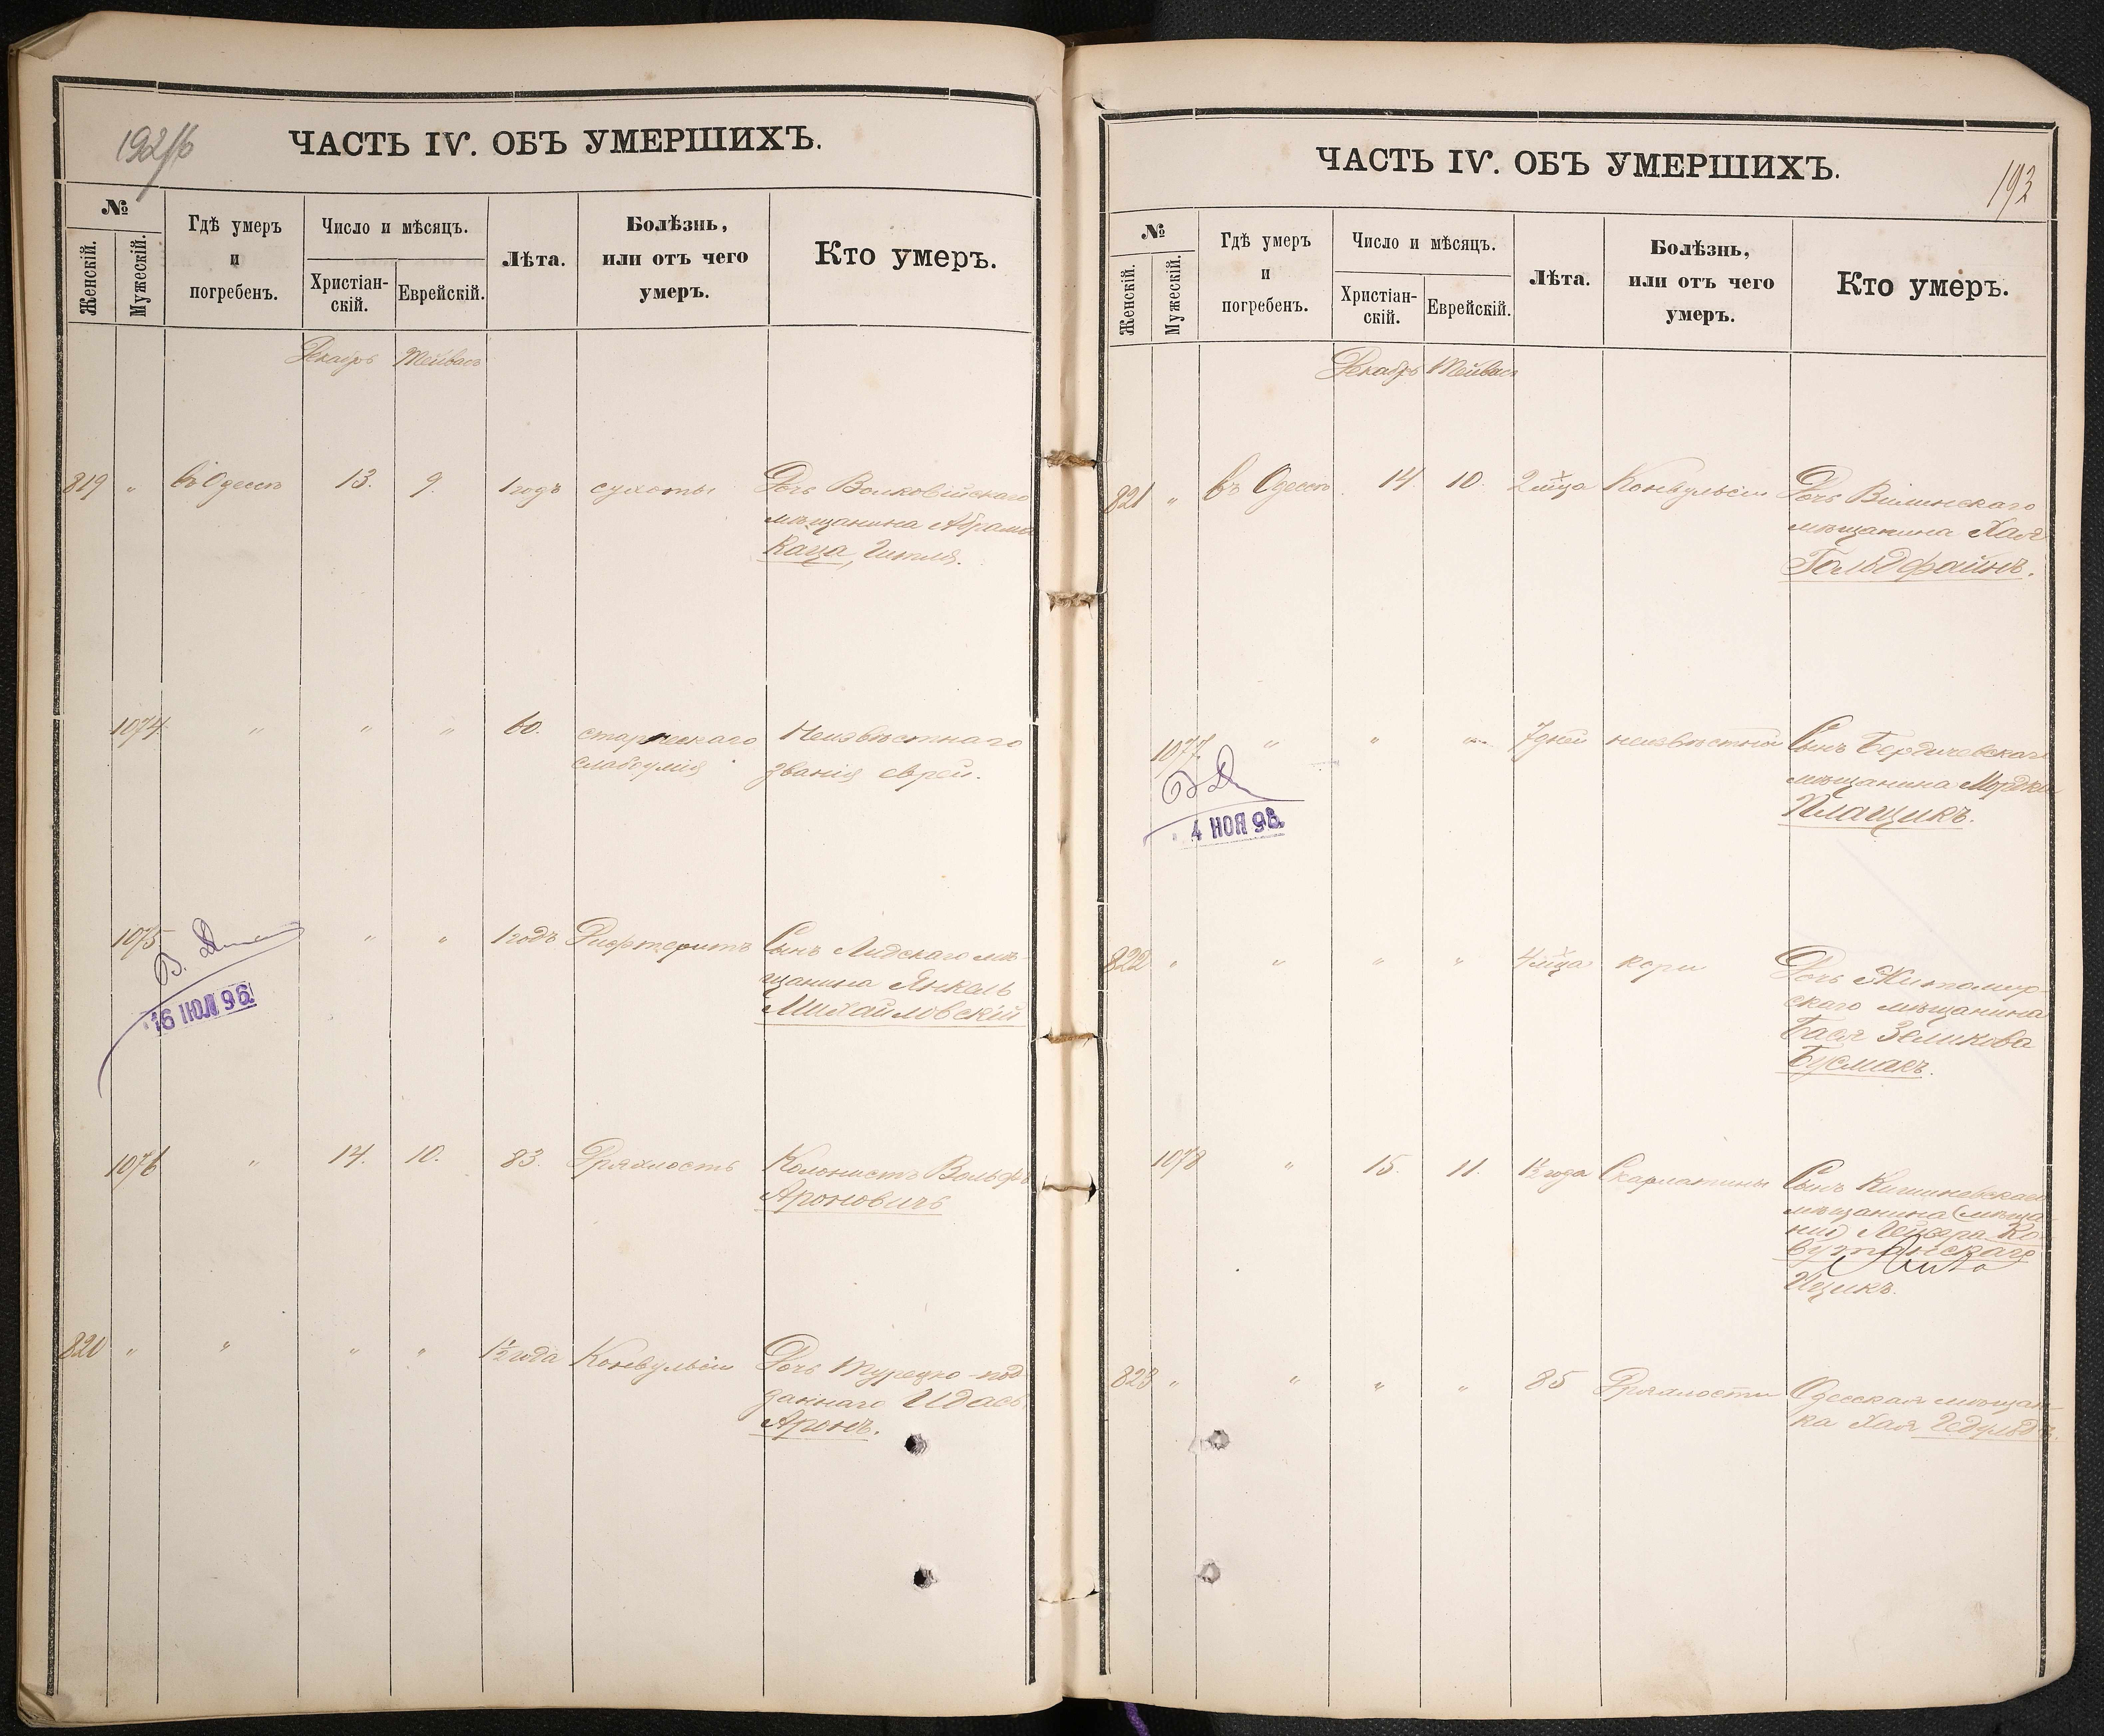 192/б
ЧАСТЬ IV. ОБЪ УМЕРШИХЪ.
№
Женскій.
Мужескій.
Гдѣ умеръ
и
погребенъ.
Число и мѣсяцъ.
Христіан-
скій.
Еврейскій.
Лѣта.
Болѣзнь,
или отъ чего
умеръ.
Кто умеръ.
Декабрь Тейвасъ
819 " въ Одессѣ 13. 9. 1 годъ сухоты Дочь Волковійскаго
мѣщанина Абрама
Каца,
1074 " " " 60. старческаго Неизвѣстнаго
слабоумія званія еврей.
1075 " " 1 годъ Дифтеритъ Сынъ Лидскаго мѣ-
щанина Янкель
Михайловскій
В.
16 ІЮЛ 96
1076 " 14. 10. 83. Дряхлость Колонистъ Вольфъ
Ароновичъ
820 " " " " 1½ года Конвульсіи Дочь Турецко-под-
даннаго Идась
Аронъ.
ЧАСТЬ IV. ОБЪ УМЕРШИХЪ.
193
№
Женскій.
Мужескій.
Гдѣ умеръ
и
погребенъ.
Число и мѣсяцъ.
Христіан-
скій.
Еврейскій.
Лѣта.
Болѣзнь,
или отъ чего
умеръ.
Кто умеръ.
Декабрь Тейвасъ
821 " въ Одессѣ 14 10. 2 мѣца Конвульсіи Дочь Вилинскаго
мѣщанина Хая
Гольдфайнъ.
1077. " " " 7 дней неизвѣстной Сынъ Бердичевскаго
мѣщанина Мордко
Плащикъ.
4 НОЯ 96.
822 " " " " 4 мѣца кори Дочь Житомир-
скаго мѣщанина
Бася Зеликова
Бусмакъ.
1078 " 15. 11. 1½ года Скарлатины Сынъ Кишиневскаго
мѣщанина (мѣща-
нин) Лейзера Ко-
Ицикъ.
823 " " " " 85 Дряхлости Одесская мѣщан-
ка Хая